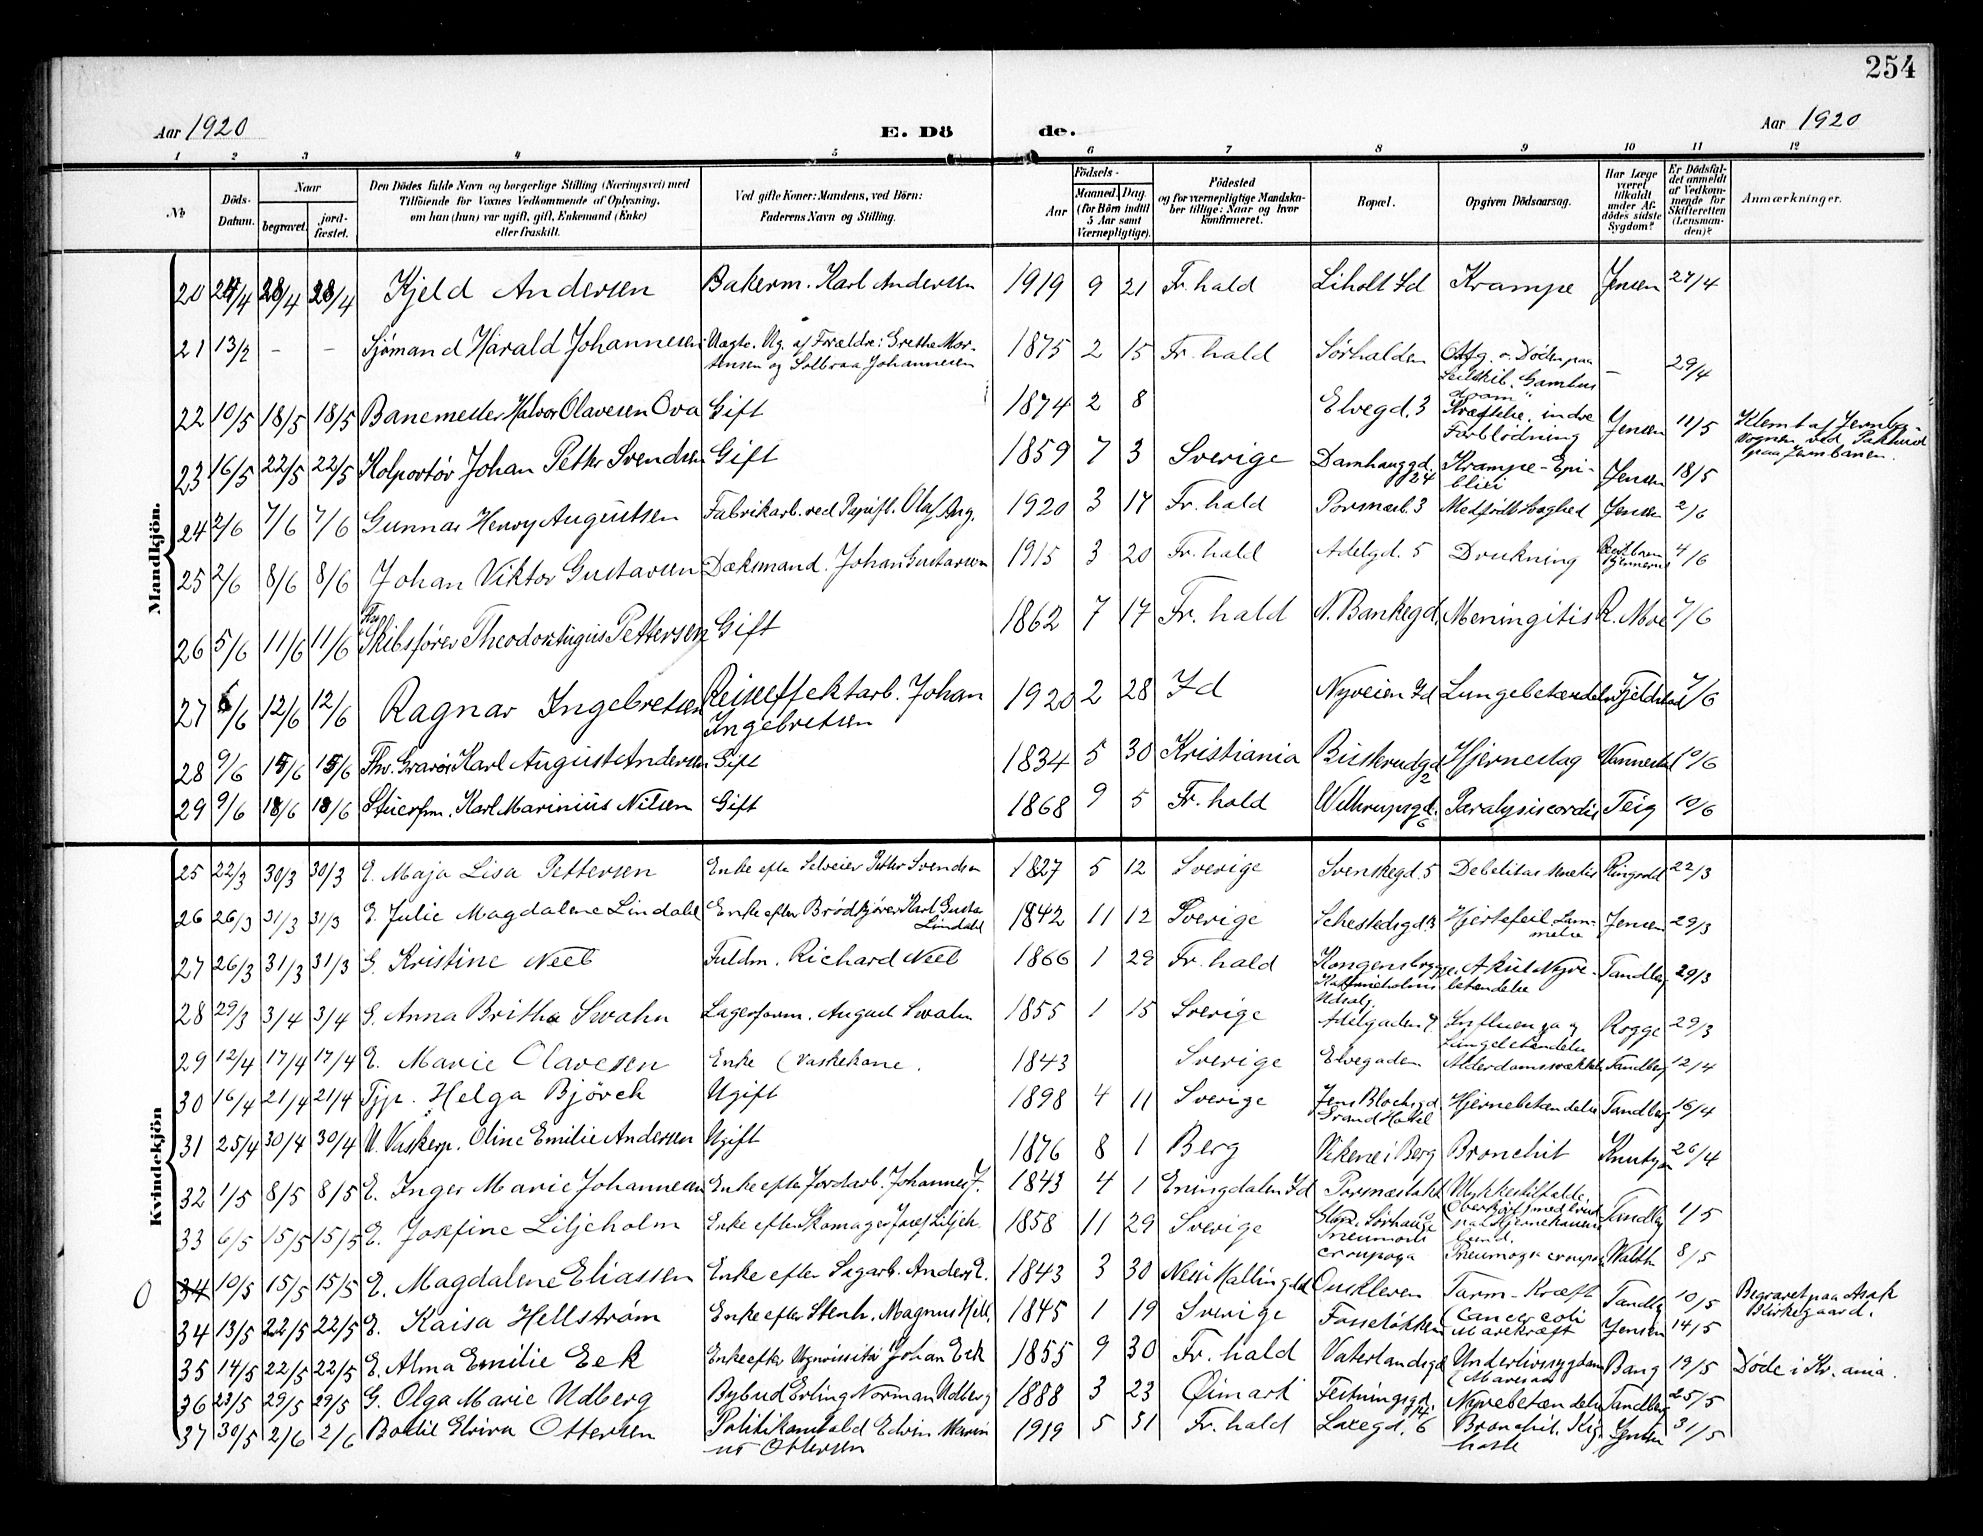 254
Aar 1920
E. Dö de.
Aar 1920
1 2 3 4 5 6 7 8 9 10 11 12
No
Döds-Datum.
Naar
begravet.
jord-fæstet.
Den Dödes fulde Navn og borgerlige Stilling (Næringsvei) med
Tilföiende for Voxnes Vedkommende af Oplysning,
om han (hun) var ugift, gift, Enkemand (Enke)
eller fraskilt.
Ved gifte Koner: Mandens, ved Börn:
Faderens Navn og Stilling.
Födsels-
Aar
Maaned. Dag.
(for Börn indtil
5 Aar samt
Værnepligtige).
Födested
og for værnepligtige Mandska-
ber tillige: Naar og hvor
konfirmeret.
Bopæl.
Opgiven Dödsaarsag.
Har Læge
været
tilkaldt
under Af-
dödes sidste
Sygdom?
Er Dödsfal-
det anmeldt
af Vedkom-
mende for
Skifteretten
(Lensman-
den)?
Anmærkninger.
Mandkjön.
20 24/4 28/4 28/4 Kjeld Andersen Bakerm. Karl Andersen 1919 9 21 Fr.hald Liholt Id Krampe Jensen 27/4
21 13/2 – – Sjömand Harald Johannesen Uægte. Ug. af Forældre: Grethe Mor-
tensen og Johannesen 1875 2 15 Fr. hald Sörhalden Döden paa
Seilskib. 29/4
22 10/5 18/5 18/5 Banemester Halvor Olavesen Ova Gift 1874 2 8 Elvegd. 3 indre
Forblödning Jensen 11/5 Klemt af Jernb.-
Vognen ved Pakhuset
paa Jernbanen.
23 16/5 22/5 22/5 Kolportör Johan Petter Svendsen Gift 1859 7 3 Sverige Damhauggd. 24 Krampe-Epi-
Jensen 18/5
24 2/6 7/6 7/6 Gunnar Henry Augustsen Fabrikarb. ved Olaf Aug. 1920 3 17 Fr. hald 3 Medfödt Svaghed Jensen 2/6
25 2/6 8/6 8/6 Johan Viktor Gustavsen Dæksmand. Johan Gustavsen 1915 3 20 Fr. hald Adelgd. 5 Drukning 4/6
26 5/6 11/6 11/6 Skibsförer Theodor Pettersen Gift 1862 7 17 Fr. hald N. Bankegd. Meningitis R. Moe 7/6
27 6/6 12/6 12/6 Ragnar Ingebretsen Reiseffektarb. Johan
Ingebretsen 1920 2 28 Id Nyveien Id Lungebetændelse Fjeldstad 7/6
28 9/6 15/6 15/6 Karl August Andersen Gift 1834 5 30 Kristiania Buskerudgd 2 Hjerneslag Vannestad 10/6
29 9/6 18/6 18/6 Stuerfm. Karl Marinius Nilsen Gift 1868 9 5 Fr. hald 6 Paralysis cordis Teig 10/6
Kvindekjön
25 22/3 30/3 30/3 E. Maja Lisa Pettersen Enke efter Selveier Petter Svendsen 1827 5 12 Sverige Svenskegd. 5 Debelitas senelis 22/3
26 26/3 31/3 31/3 E. Julie Magdalene Lindahl Enke efter Brödkjörer Karl Gusta
Lindahl 1842 11 12 Sverige Hjertefeil. Lam-
melse Jensen 29/3
27 26/3 31/3 31/3 G. Kristine Neeb Fuldm. Richard Neeb 1866 1 29 Fr. hald Akut Nyre-
betændelse Tandberg 29/3
28 29/3 3/4 3/4 G. Anna Britha Swahn Lagerform. August Swahn 1855 1 15 Sverige Adelgaden 7 Influenza og
Lungebetændelse Rogge 29/3
29 12/4 17/4 17/4 E. Marie Olavesen Enke (Vaskekone. 1843 Sverige Elvegaden Alderdomssvækkelse Tandberg 12/4
30 16/4 21/4 21/4 Tjp. Helga Björck Ugift 1898 4 11 Sverige Jens Blochsgd
Grand Hotel Hjernebetændelse Tandberg 16/4
31 25/4 30/4 30/4 U. Vaskerp. Oline Emilie Andersen Ugift 1876 8 1 Berg Vikene i Berg Bronchit 26/4
32 1/5 8/5 8/5 E. Inger Marie Johannesen Enke efter Jordarb. Johannes J. 1843 4 1 Eningdalen Id Ulykkestilfælde.
Tandberg 1/5
33 6/5 15/5 15/5 E. Josefine Liljeholm Enke efter Skomager Josef Liljeh. 1858 11 29 Sverige Pneumonia croupøsa 8/5
O 34 10/5 15/5 15/5 E. Magdalene Eliassen Enke efter Sagarb. Anders E. 1843 3 30 Nes i Hallingdal Ouskleven Tarm-Kræft
(Cancer coli Tandbg 10/5 Begravet paa Asak
Kirkegaard.
34 13/5 22/5 22/5 E. Kaisa Hellström Enke efter Stenh. Magnus Hell. 1845 1 19 Sverige Fosseløkken Mavekræft Jensen 14/5
35 14/5 22/5 22/5 E. Alma Emilie Eek Enke efter Vognvisitør Johan Eek 1855 9 30 Fr. hald Vaterlandsgd Underlivssygdom
Bang 19/5 Døde i Kr.ania.
36 23/5 29/5 29/5 G. Olga Marie Udberg Bybud Erling Norman Udberg 1888 3 23 Festningsgd. Nyrebetændelse Tandberg 25/5
37 30/5 2/6 2/6 Bodil Elvira Ottersen Politikonstabel Edvin Marin
us Ottersen 1919 5 31 Fr. hald Laxegd. 6 Bronchit. Kig-
hoste Jensen 31/5